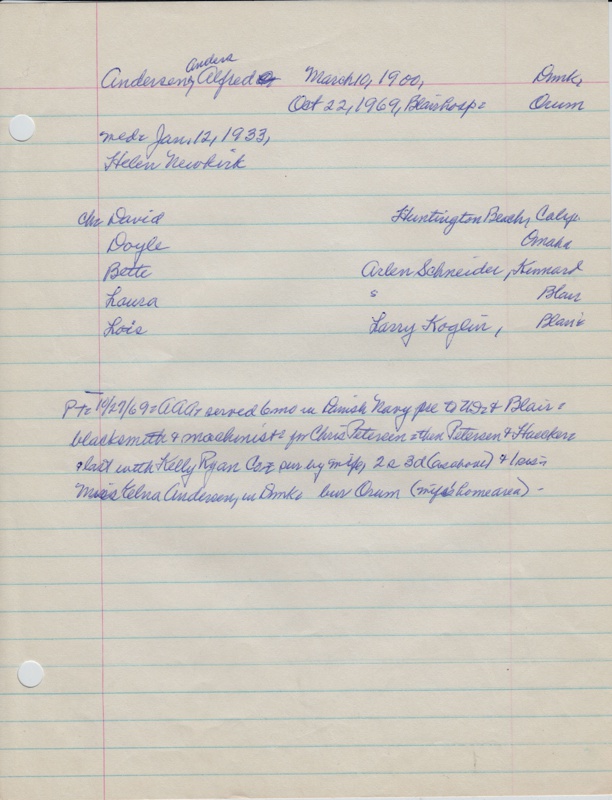 Anders
Andersen, Alfred March 10, 1900, Dmk,
Oct 22, 1969, Blair hosp = Orum
med = Jan. 12, 1933,
Helen Newkirk
ch = David Huntington Beach, Calif.
Doyle Omaha
Bette Arlen Schneider, Kennard
Laura " Blair
Lois Larry Koglin, Blair
PT = 10/27/69 = AAA, served 6 mo in Danish Navy pre to US = & Blair =
blacksmith & machinist = for Chris Petersen = then Petersen &
& last with Kelly Ryan Co = sur by wife, 2 s 3 d (as above) & 1 sis =
Miss Telna Andersen, in Dmk = bur Orum (wife's home area) -